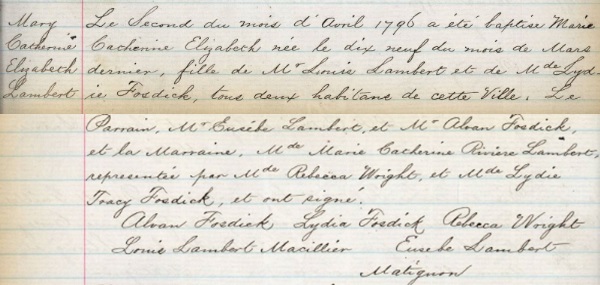 Mary Le Second du mois d'Avril 1796 a été baptise Marie
Catherine Catherine Elizabeth née le dix neuf du mois de Mars
Elizabeth dernier, fille de Mr Louis Lambert et de Mde Lyd-
Lambert ie Fosdick, tous deux habitans de cette Ville. Le
Parrain, Mr Eusèbe Lambert, et Mr Alvan Fosdick,
et la Marraine, Mde Marie Catherine Riviere Lambert,
representée par Mde Rebecca Wright, et Mde Lydie
Tracy Fosdick, et ont signé.
Alvan Fosdick Lydia Fosdick Rebecca Wright
Louis Lambert Macillier Eusebe Lambert
Matignon